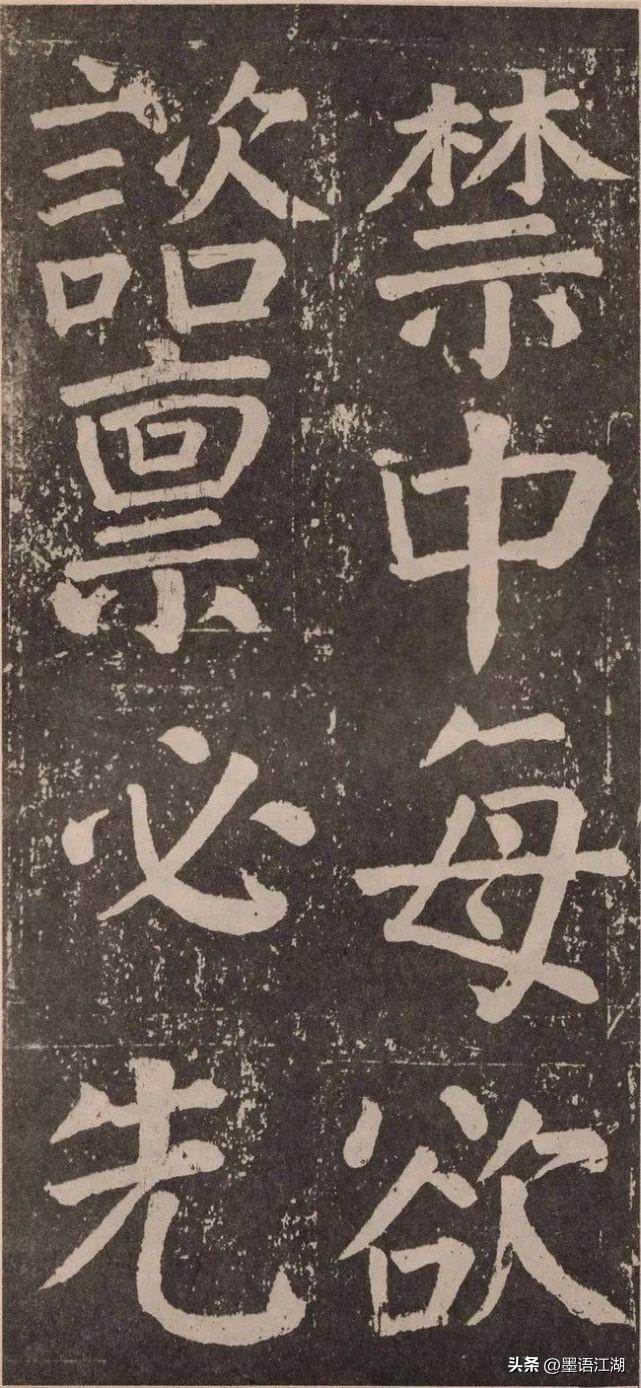 禁中每欲
諮禀必先
头条 @墨语江湖